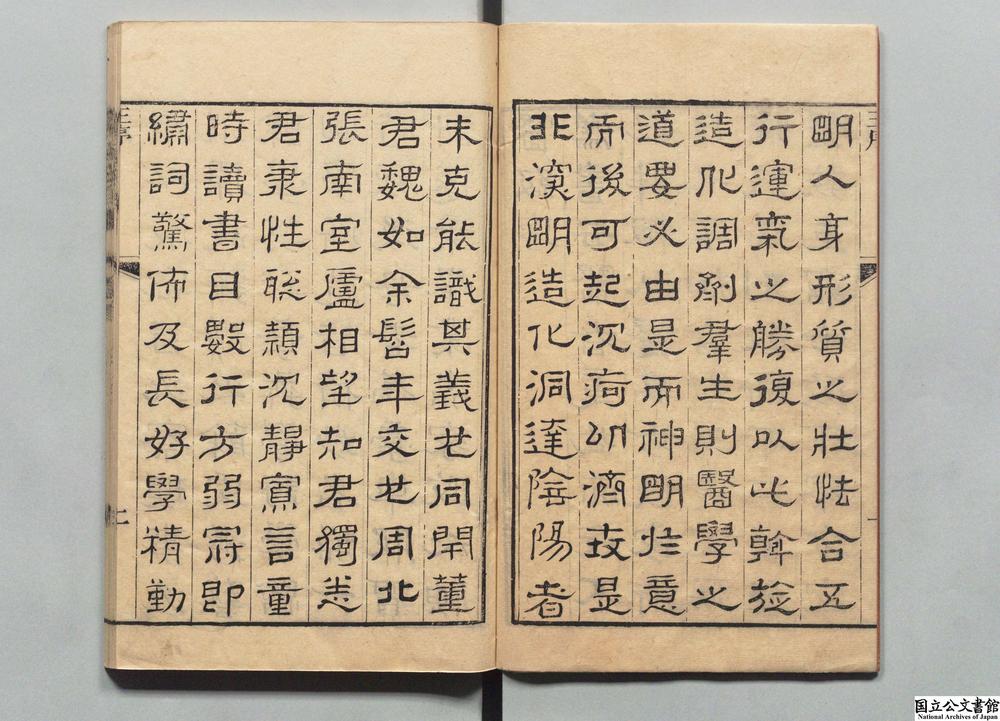 明人身形質之壯怯合五
行運氣之勝復以此斡旋
造化調劑羣生則醫學之
道要必由是而神明於意
而後可起沉疴以濟世是
非深明造化洞達陰陽者
未克能識其義也同閈董
君魏如余髫年交也周北
張南室廬相望知君獨悉
君秉性聡穎沉靜寡言童
時讀書目數行方弱冠即
繡詞驚佈及長好學精勤
王序
二
国立公文書館
National Archives of Japan